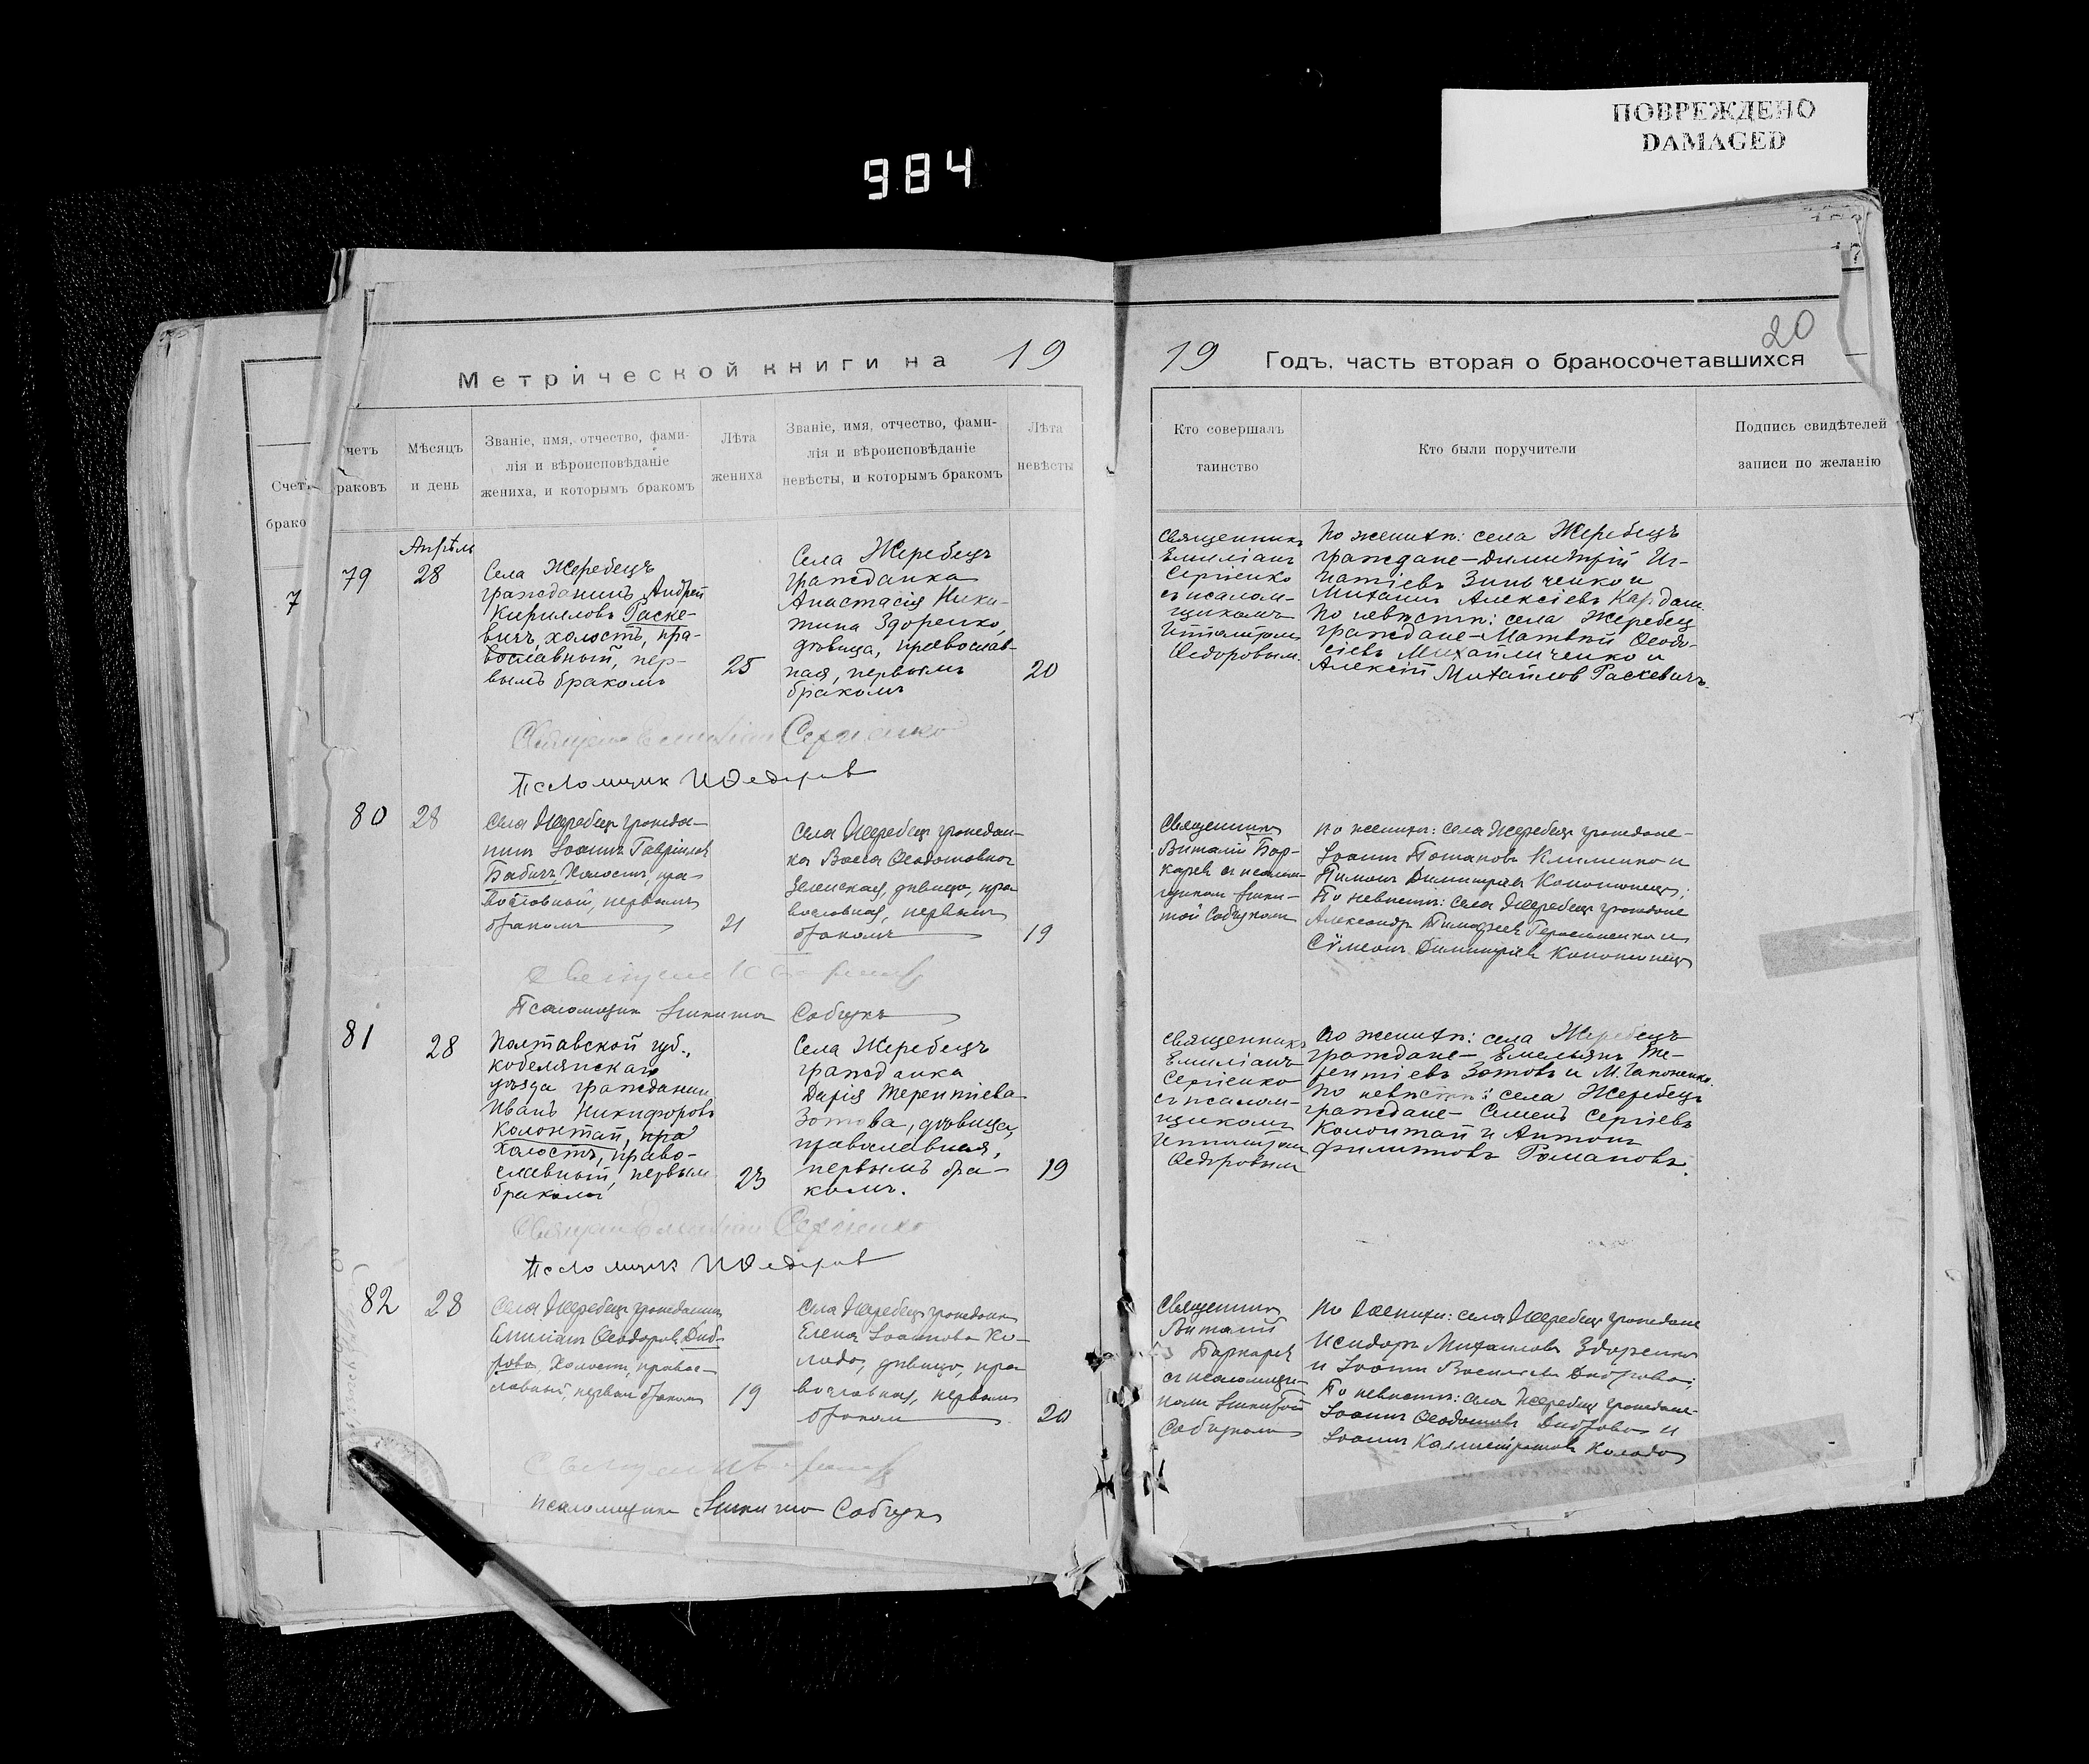 ПОВРЕЖДЕНО
DAMAGED
984
20
Метрической книги на 19
19 Годъ, часть вторая о бракосочетавшихся
Счетъ
брако
7
четъ
раковъ
Мѣсяцъ
и день
Званіе, имя, отчество, фами-
лія и вѣроисповѣданіе
жениха, и которымъ бракомъ
Лѣта
жениха
Званіе, имя, отчество, фами-
лія и вѣроисповѣданіе
невѣсты, и которымъ бракомъ
Лѣта
невѣсты
Кто совершалъ
таинство
Кто были поручители
Подпись свидѣтелей
записи по желанію
79
Апрѣль
28
Села Жеребецъ
гражданинъ Андрей
Кирилловъ Раске-
вичъ, холостъ, пра-
вославный, пер-
вымъ бракомъ
25
Села Жеребецъ
гражданка
Анастасія Ники-
тина Здоренко,
дѣвица, православ-
ная, первымъ
бракомъ
20
Священникъ
Емиліанъ
Сергіенко
съ псалом-
щикомъ
Федоровым.
По женихѣ: села Жеребецъ
граждане – Димитрій Иг-
натіевъ Зинченко и
Михаилъ Алексіевъ
По невѣстѣ: села Жеребец
граждане – Матвѣй Феодо-
сіевъ Михайличенко и
Алексій Михайлов Раскевичъ.
Священ Емиліан Сергіенко
Псаломщик И Федоров
80
28
Села Жеребецъ гражда-
нинъ Іоаннъ Гавріиловъ
Бабичъ, холостъ, пра-
вославный, первымъ
бракомъ
21
Села Жеребецъ граждан-
ка Васса Феодотовна
Зеленская, дѣвица, пра
вославная, первымъ
бракомъ
19
Священникъ
Виталій Бор-
карев съ псалом-
щиком Ники-
той Собцуком
По женихѣ: села Жеребецъ граждане –
Іоаннъ Потаповъ Клименко и
Димитріевъ Кононенецъ;
По невѣстѣ: села Жеребецъ граждане
Александръ Тимофеев Герасименко и
Сѵмеонъ Димитріевъ Кононенецъ
Псаломщик Никита Собцукъ
81
28
Полтавской губ.,
Кобелянскаго
уѣзда гражданин
Иванъ Никифоровъ
Колонтай, пра
холостъ, право-
славный, первым
бракомъ
23
Села Жеребецъ
гражданка
Дарія Терентіева
Зотова, дѣвица,
православная,
первымъ бра-
комъ.
19
Священникъ
Емиліанъ
Сергіенко
съ псалом-
щикомъ
Федоровым
По женихѣ: села Жеребецъ
граждане – Емельянъ Те-
рентіевъ Зотовъ и М. Гапоненко.
По невѣстѣ: села Жеребецъ
граждане – Семенъ Сергіевъ
Колонтай и Антонъ
Филипповъ Романовъ.
Священ Емиліан Сергіенко
Псаломщик И Федоров
82
28
Села Жеребецъ гражданинъ
Емиліанъ Феодоровъ Диб-
рова, холостъ, правос-
лавный, первым бракомъ
19
Села Жеребецъ гражданка
Елена Іоаннова Ко-
лода, дѣвица, пра
вославная, первымъ
бракомъ
20
Священникъ
Виталій
съ псаломщи-
комъ Никитой
Собцуком
По женихѣ: села Жеребецъ граждане
Исидоръ Михаиловъ Здоренко
и Іоаннъ Васильевъ Диброва;
По невѣстѣ: села Жеребецъ граждане –
Іоаннъ Феодотовъ Диброва и
Іоаннъ Каллистратовъ Колода
Псаломщикъ Никита Собцукъ